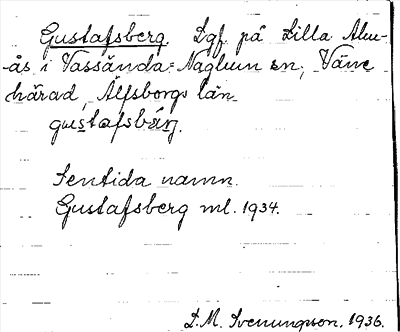 Gustafsberg. Lgf. på Lilla Alm-
-ås i Vassända-Naglum sn, Väne
härad, Älfsborgs län
gustafsbärj.
Sentida namn.
Gustafsberg ml. 1934.
L.M. Svenungson. 1936.